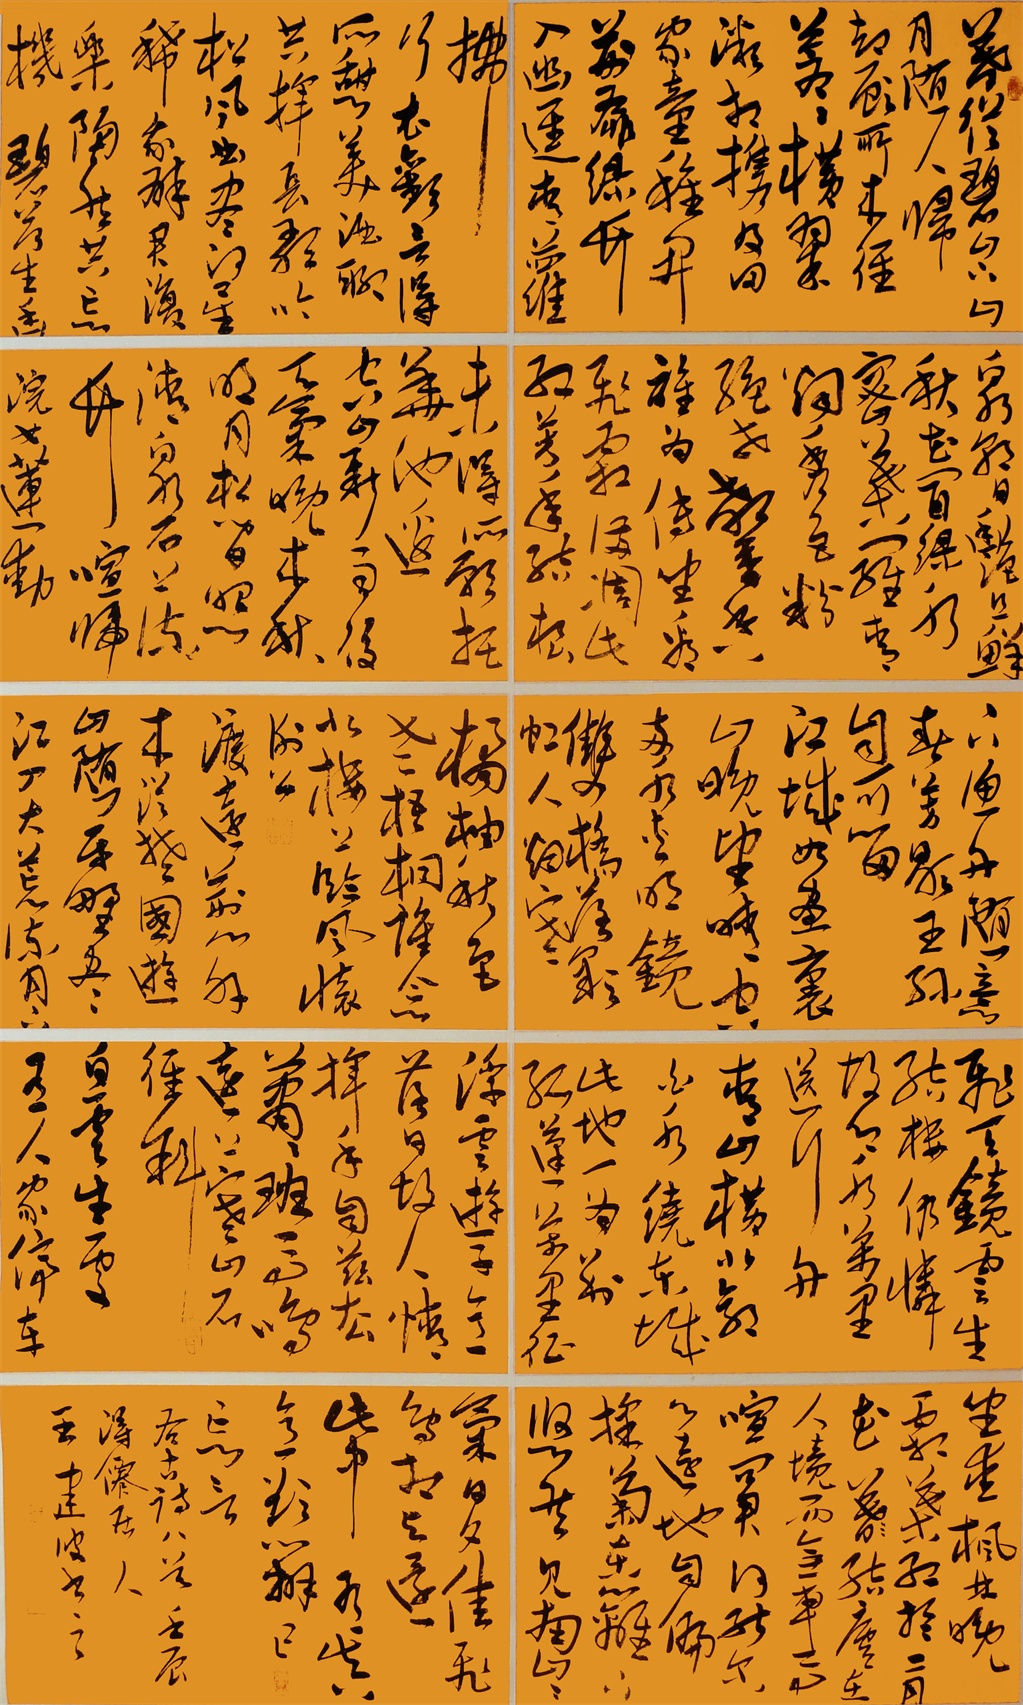 暮從碧山下山
月隨人歸
却顧所來徑
蒼蒼橫翠
微相攜及田
家童稚開
荊扉綠竹
入幽逕青蘿
拂
行衣歡言得
所憩美酒聊
共揮長歌吟
松風曲盡河星
稀我醉君復
樂陶然共忘
機碧荷生幽
泉朝日艷且鮮
秋花冒綠水
密葉羅青
煙秀色粉
絕世馨香
誰為傳坐看
飛霜滿凋此
紅芳年結根
未得所願托
華池邊
空山新雨後
天氣晚來秋
明月松間照
清泉石上流
竹喧歸
浣女蓮動
下漁舟隨意
春芳歇王孫
自可留
江城如畫裏
山晚望晴空
兩水夾明鏡
雙橋落彩
虹人烟寒
橘柚秋色
老梧桐誰念
北樓上臨風懷
謝公
渡遠荊門外
來從楚國遊
山隨平野盡
江入大荒流月下
飛天鏡雲生
結樓仍憐
故鄉水萬里
送行舟
青山橫北郭
白水繞東城
此地一為別
孤蓬萬里征
浮雲遊子意
落日故人情
揮手自茲去
蕭蕭班馬鳴
遠上寒山石
徑斜
白雲生處
有人家停車
坐愛楓林晚
霜葉紅於二月
花結廬在
人境而無車馬
喧問君何能爾
心遠地自偏
採菊東籬下
悠然見南山山
氣日夕佳飛
鳥相與還
此中有真
意欲辯已
忘言
右古詩八首壬辰
得僊居人
王建波書之